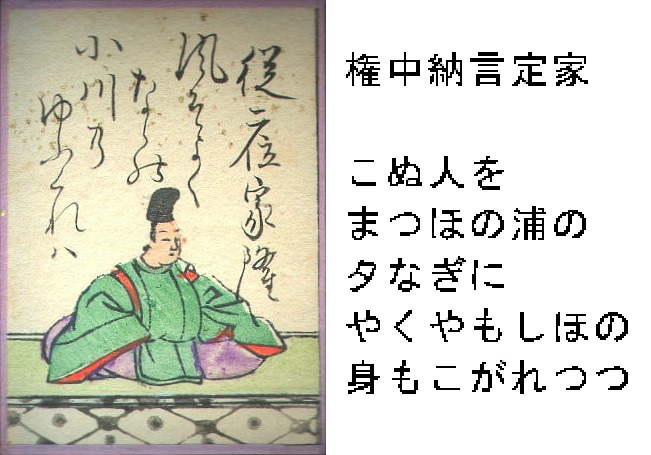 従二位家隆
風そよく
ならの
小川乃
ゆふくれハ
権中納言定家
こぬ人を
まつほの浦の
夕なぎに
やくやもしほの
身もこがれつつ